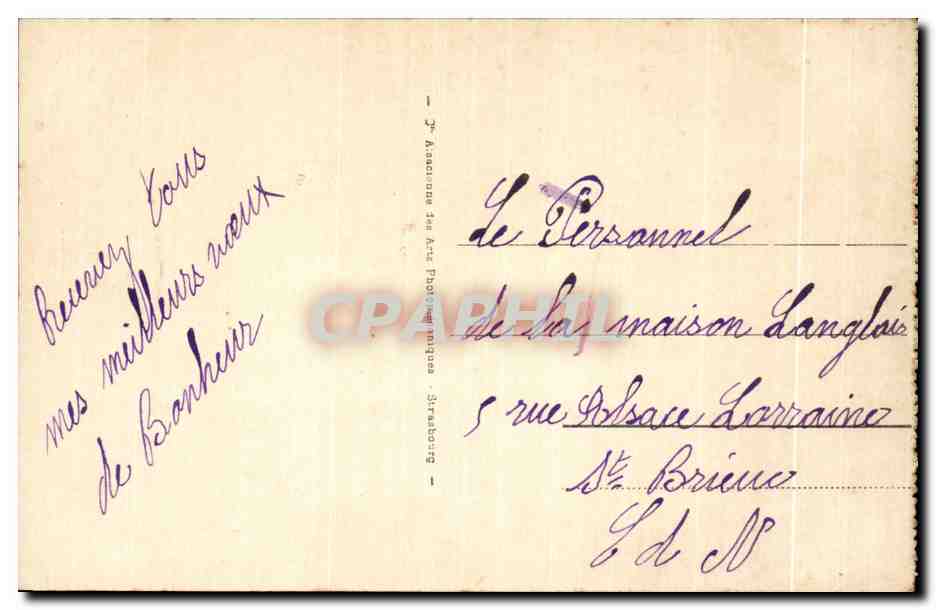 Recevez tous
mes meilleurs vœux
de Bonheur
— Cie Alsacienne des Arts Photomécaniques - Strasbourg —
Le Personnel
de la maison Langlois
5 rue Alsace Lorraine
St Brieuc
C d N
CPAPHIL